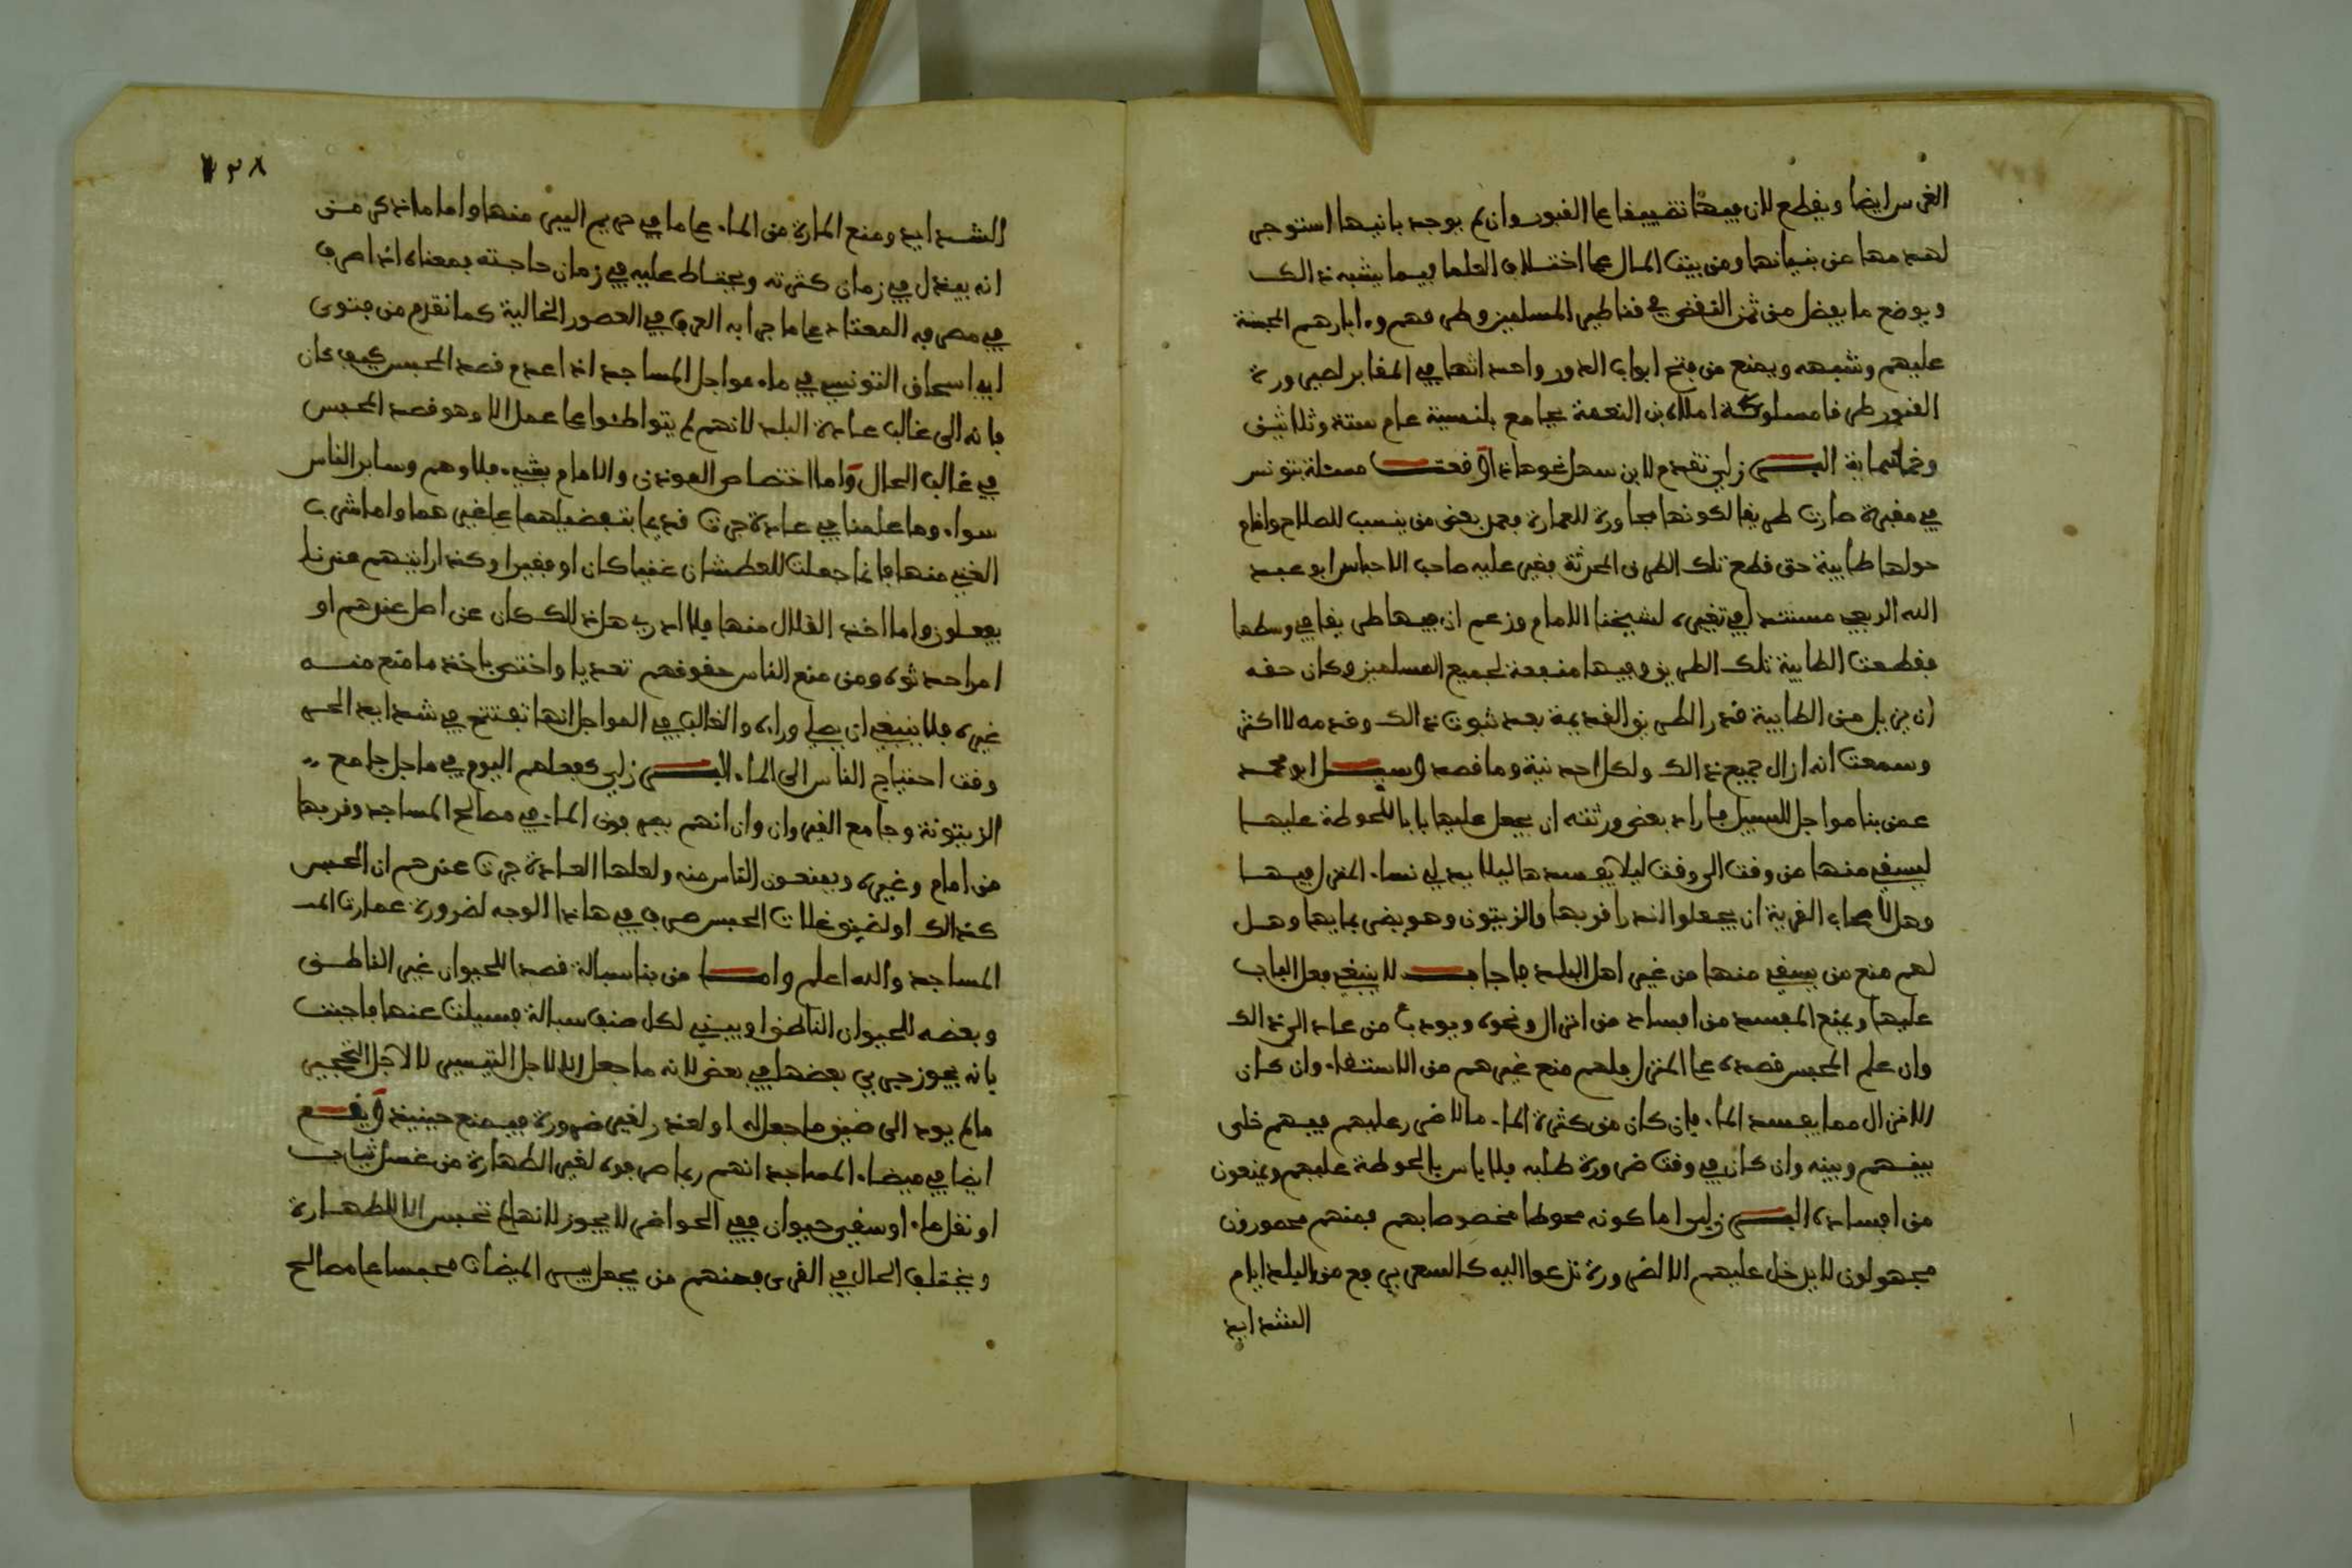 الغرس ايضا ويقطع لان فيها تضييقا على القبور وان لم يوجد بانيها استوجر
لهدمها من بنيانها ومن بيت المال على اختلاف العلما فيما يشبه ذالك
ويوضع ما يفضل من ثمن النقض في قناطير المسلمين وطرقهم وءابارهم المحبسة
عليهم وشبهه ويمنع من فتح ابواب الدور واحداثها في المقابر لصيرورة
القبور طرقا مسلوكة املاه ابن النعمة بجامع بلنسية عام ستة وثلاثين
وخمسماية البرزلي تقدم لابن سهل نحو هاذا وقعت مسئلة بتونس
في مقبرة صارت طريقا لكونها مجاورة للعمارة فعمل بعض من ينسب للصلاح واقام
حولها طابية حتى قطع تلك الطرق المحدثة فغير عليه صاحب الاحباس ابو عبد
الله الربعي مستندا في تغييره لشيخنا الامام وزعم ان فيها طريقا في وسطها
فقطعت الطابية تلك الطريق وفيها منفعة لجميع المسلمين وكان حقه
ان يزيل من الطابية قدر الطريق القديمة بعد ثبوت ذالك وقدمه لا اكثر
وسمعت انه ازال جميع ذالك ولكل احد نية وما قصد وسيل ابو محمد
عمن بنا مواجل للسبيل فاراد بعض ورثته ان يجعل عليها بابا للحوطة عليها
ليسقي منها من وقت الى وقت ليلا يفسدها ليلا يدلي نساء المنزل فيها
وهل لاصحاب القرية ان يجعلوا اندرا قربها والزيتون وهو يضر بمايها وهل
لهم منع من يسقي منها من غير اهل البلد فاجاب لا ينبغي فعل الباب
عليها ويمنع المفسد من افساده من انزال ونحوه ويودب من عاد الى ذالك
وان علم المحبس قصده على المنزل فلهم منع غيرهم من الاستقاء وان كان
الانزال مما يفسد الماء فان كان من كثرة الماء ما لا ضرر عليهم فيهم خلى
بينهم وبينه وان كان في وقت ضرورة طلبه فلا باس بالحوطة عليهم ويمنعون
من افساده البرزلي اما كونه محوطا مخصوصا بهم فمنهم محصورون
مجهولون لا يدخل عليهم الا لضرورة تدعوا اليه كالسعر يرفع من البلد ايام
الشدايد
١٣٨
الشدايد ومنع المارة من الماء على ما في حريم البير منها واما ما ذكر من
انه يبذل في زمان كثرته ويحتاط عليه في زمان حاجته بمعناه اذا صرف
في مصرفه المعتاد على ما جرا به العرف في العصور الخالية كما تقدم من فتوى
ابي اسحاق التونسي في ماء مواجل المساجد اذا عدم قصد المحبس كيف كان
فانه الى غالب عادة البلد لانهم لم يتواطئوا على عمل الا وهو قصد المحبس
في غالب الحال واما اختصاص المؤذن والامام بشيء فلا وهم وساير الناس
سواء وما علمنا في عادة جرت قديما بتفضيلهما على غيرهما واما شرب
الغني منها فانما جعلت للعطشان غنيا كان او فقيرا وكذا رايتهم عندنا
يفعلون واما اخذ القلال منها فلا ادري هل ذلك كان عن اصل عندهم او
امر احدثوه ومن منع الناس حقوقهم تعديا واختص باخذ ما منع منه
غيره فلا ينبغي ان يصلى وراءه والغالب في المواجل انها تفتتح في شدايد الحر
وقت احتياج الناس الى الماء البرزلي كفعلهم اليوم في ماجل جامع
الزيتونة وجامع القيروان وان انهم يصرفون الماء في مصالح المساجد وقربها
من امام وغيره ويمنعون الناس منه ولعلها العادة جرت عندهم ان المحبس
كذالك او لضيق غلات الحبس صرف في هاذا الوجه لضرورة عمارت المـ
المساجد والله اعلم واما من بنا سبالة قصدا للحيوان غير الناطق
وبعضه للحيوان الناطق او يبني لكل صنف سبالة فسيلت عنها فاجبت
بانه يجوز جري بعضها في بعض لانه ما جعل الا لاجل التيسير لا لاجل التحجير
ما لم يود الى ضيق ما جعل له او لعذر لغير ضرورة فيمنع حينيذ ويقع
ايضا في ميضاء المساجد انهم ربما صرفوه لغير الطهارة من غسل ثياب
او نقل ماء او سقي حيوان ففي الحواضر لا يجوز لانها لم تحبس الا للطهارة
ويختلف الحال في القرى فمنهم من يجعل بير الميضات محبسا على مصالح